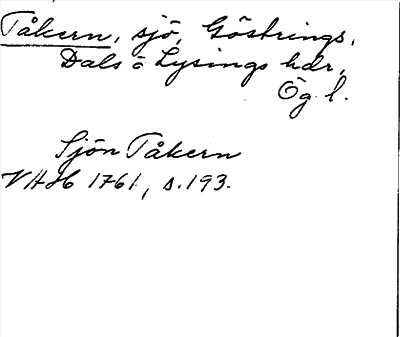 Tåkern, sjö, Göstrings,
Dals o Lysings hdr,
Ög. l.
Sjön Tåkern
VHH 1761, s. 193.